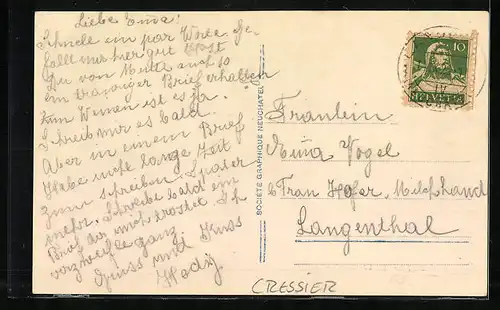 Liebe Emma!
Schnelle ein par Worte. Ge
fallt mir hier gut. Hast
du von Mutter auch so
ein trauriger Brief erhalten
zum Weinen ist es ja.
Schreib mir es bald.
Aber in einem Brief
Habe nicht lange Zeit
zum schreiben. Später
mehr. Schreibe bald ein
Brief der mich tröstet. Ich
verzweifle ganz.
Gruss und Kuss
Hedy.
SOCIÉTÉ GRAPHIQUE NEUCHATEL
10
HELVETIA
Fräulein
Emma Vogel
b/ Frau Hofer, Milchhand
Langenthal
CRESSIER